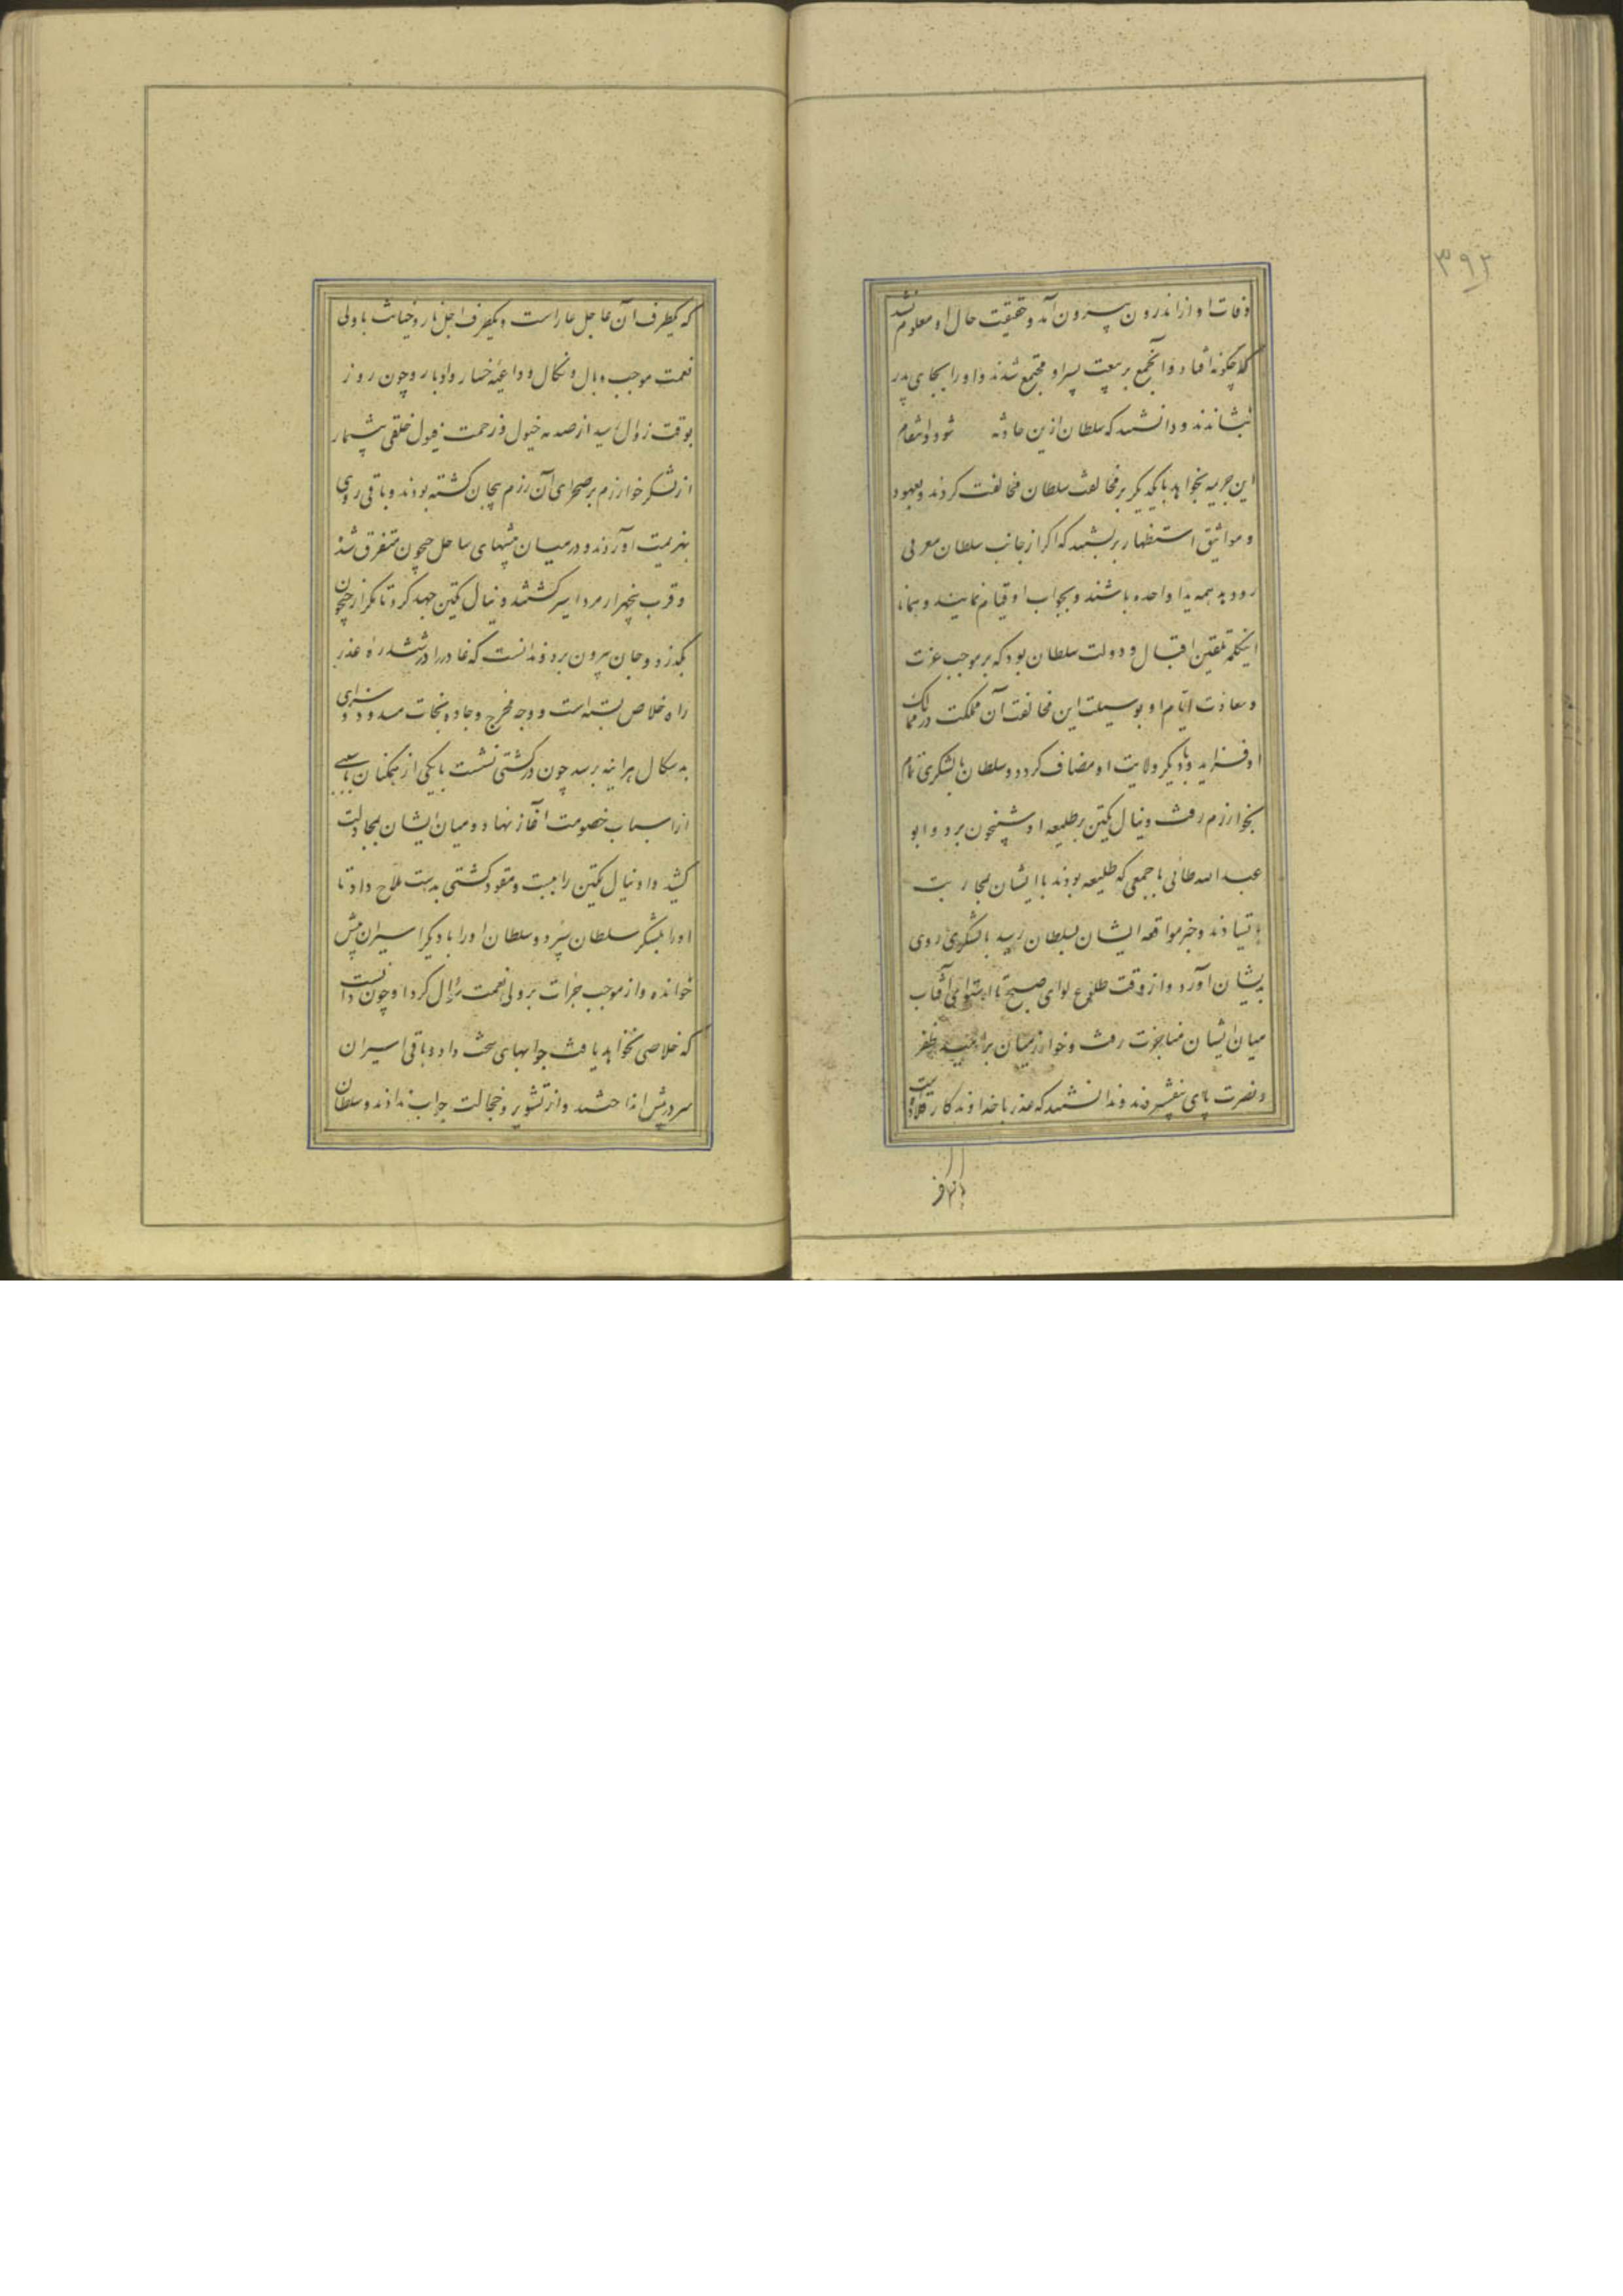 ۳۹۲
وفات او از اندرون بیرون آمد و حقیقت حال او معلوم نشد
که چگونه افتاد و آنجمع بر بیعت پسر او مجتمع شدند و او را بجای پدر
بنشاندند و دانستند که سلطان ازین حادثه شود و انتقام
این جریمه بخواهد با یکدیگر بر مخالفت سلطان مخالفت کردند و بعهود
و مواثیق استظهار بر بستند که اگر از جانب سلطان معرتی
رود ید همه یدا واحده باشند و بجواب او قیام نمایند و همانا
اینکلمه تلقین اقبال و دولت سلطان بود که بر موجب عزت
و سعادت ایام او بوسیلت این مخالفت آن مملکت در ممالک
او فزاید و با دیگر ولایت او مضاف گردد و سلطان با لشکری تمام
بخوارزم رفت و نیال تکین بر طلیعه او شبیخون برد و ابو
عبدالله طائی با جمعی که طلیعه بودند با ایشان بمحاربت
بایستادند و خبر مواقعه ایشان بسلطان رسید با لشکری روی
بدیشان آورد و از وقت طلوع لوای صبح تا استوای آفتاب
میان ایشان مناجزت رفت و خوارزمیان بر امید ظفر
و نصرت پای بیفشردند و ندانستند که غدر با خداوندگار قلاده ایست
که یکطرف آن عاجل عار است و یکطرف اجل نار و خیانت با ولی
نعمت موجب وبال و نکال و داعیه خسار و ادبار و چون روز
بوقت زوال رسید از صدمه خیول و زحمت فیول خلقی بیشمار
از لشکر خوارزم بر صحرای آن رزم بیجان گشته بودند و باقی روی
بهزیمت آوردند و در میان بیشهای ساحل جیحون متفرق شدند
و قرب پنجهزار مرد اسیر گشتند و نیال تکین جهد کرد تا بگذار جیحون
بگذرد و جان بیرون برد و ندانست که غادر را در ششدره غدر
راه خلاص بسته است و وجه مخرج و جاده نجات مسدود و سزای
بد سگال هراینه برسد چون در کشتی نشست با یکی از همگنان بسببی
از اسباب خصومت آغاز نهاد و میان ایشان بمجادلت
کشید و او نیال تکین را ببست و مقود کشتی بدست ملاح داد تا
او را بلشکر سلطان سپرد و سلطان او را با دیگر اسیران پیش
خوانده و از موجب جرات بر ولی نعمت سؤال کرد او چون دانست
که خلاصی نخواهد یافت جوابهای سخت داد و باقی اسیران
سر در پیش انداختند و از تشویر و خجالت جواب ندادند و سلطان